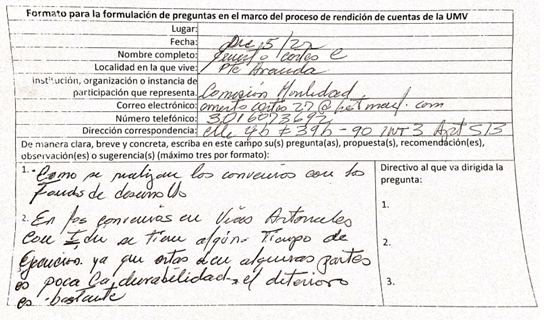 Formato para la formulación de preguntas en el marco del proceso de rendición de cuentas de la UMV
Lugar:
Fecha: Dic 5/22
Nombre completo: Cortes C
Localidad en la que vive: Pte Aranda
Institución, organización o instancia de
participación que representa. Comision Movilidad.
Correo electrónico: cortes 27@hotmail.com
Número telefónico:
Dirección correspondencia: clle 4b # 39b - 90 INT 3 Apt 513
De manera clara, breve y concreta, escriba en este campo su(s) pregunta(as), propuesta(s), recomendación(es),
observación(es) o sugerencia(s) (máximo tres por formato):
1. Como se realizan los convenios con los
Fondos de desarrollo
2. En los convenios en Vias Arteriales
con Idu se tiene algún Tiempo de
Ejecución. ya que estas en algunas partes
es poca la durabilidad, el deterioro
es bastante
Directivo al que va dirigida la
pregunta:
1.
2.
3.